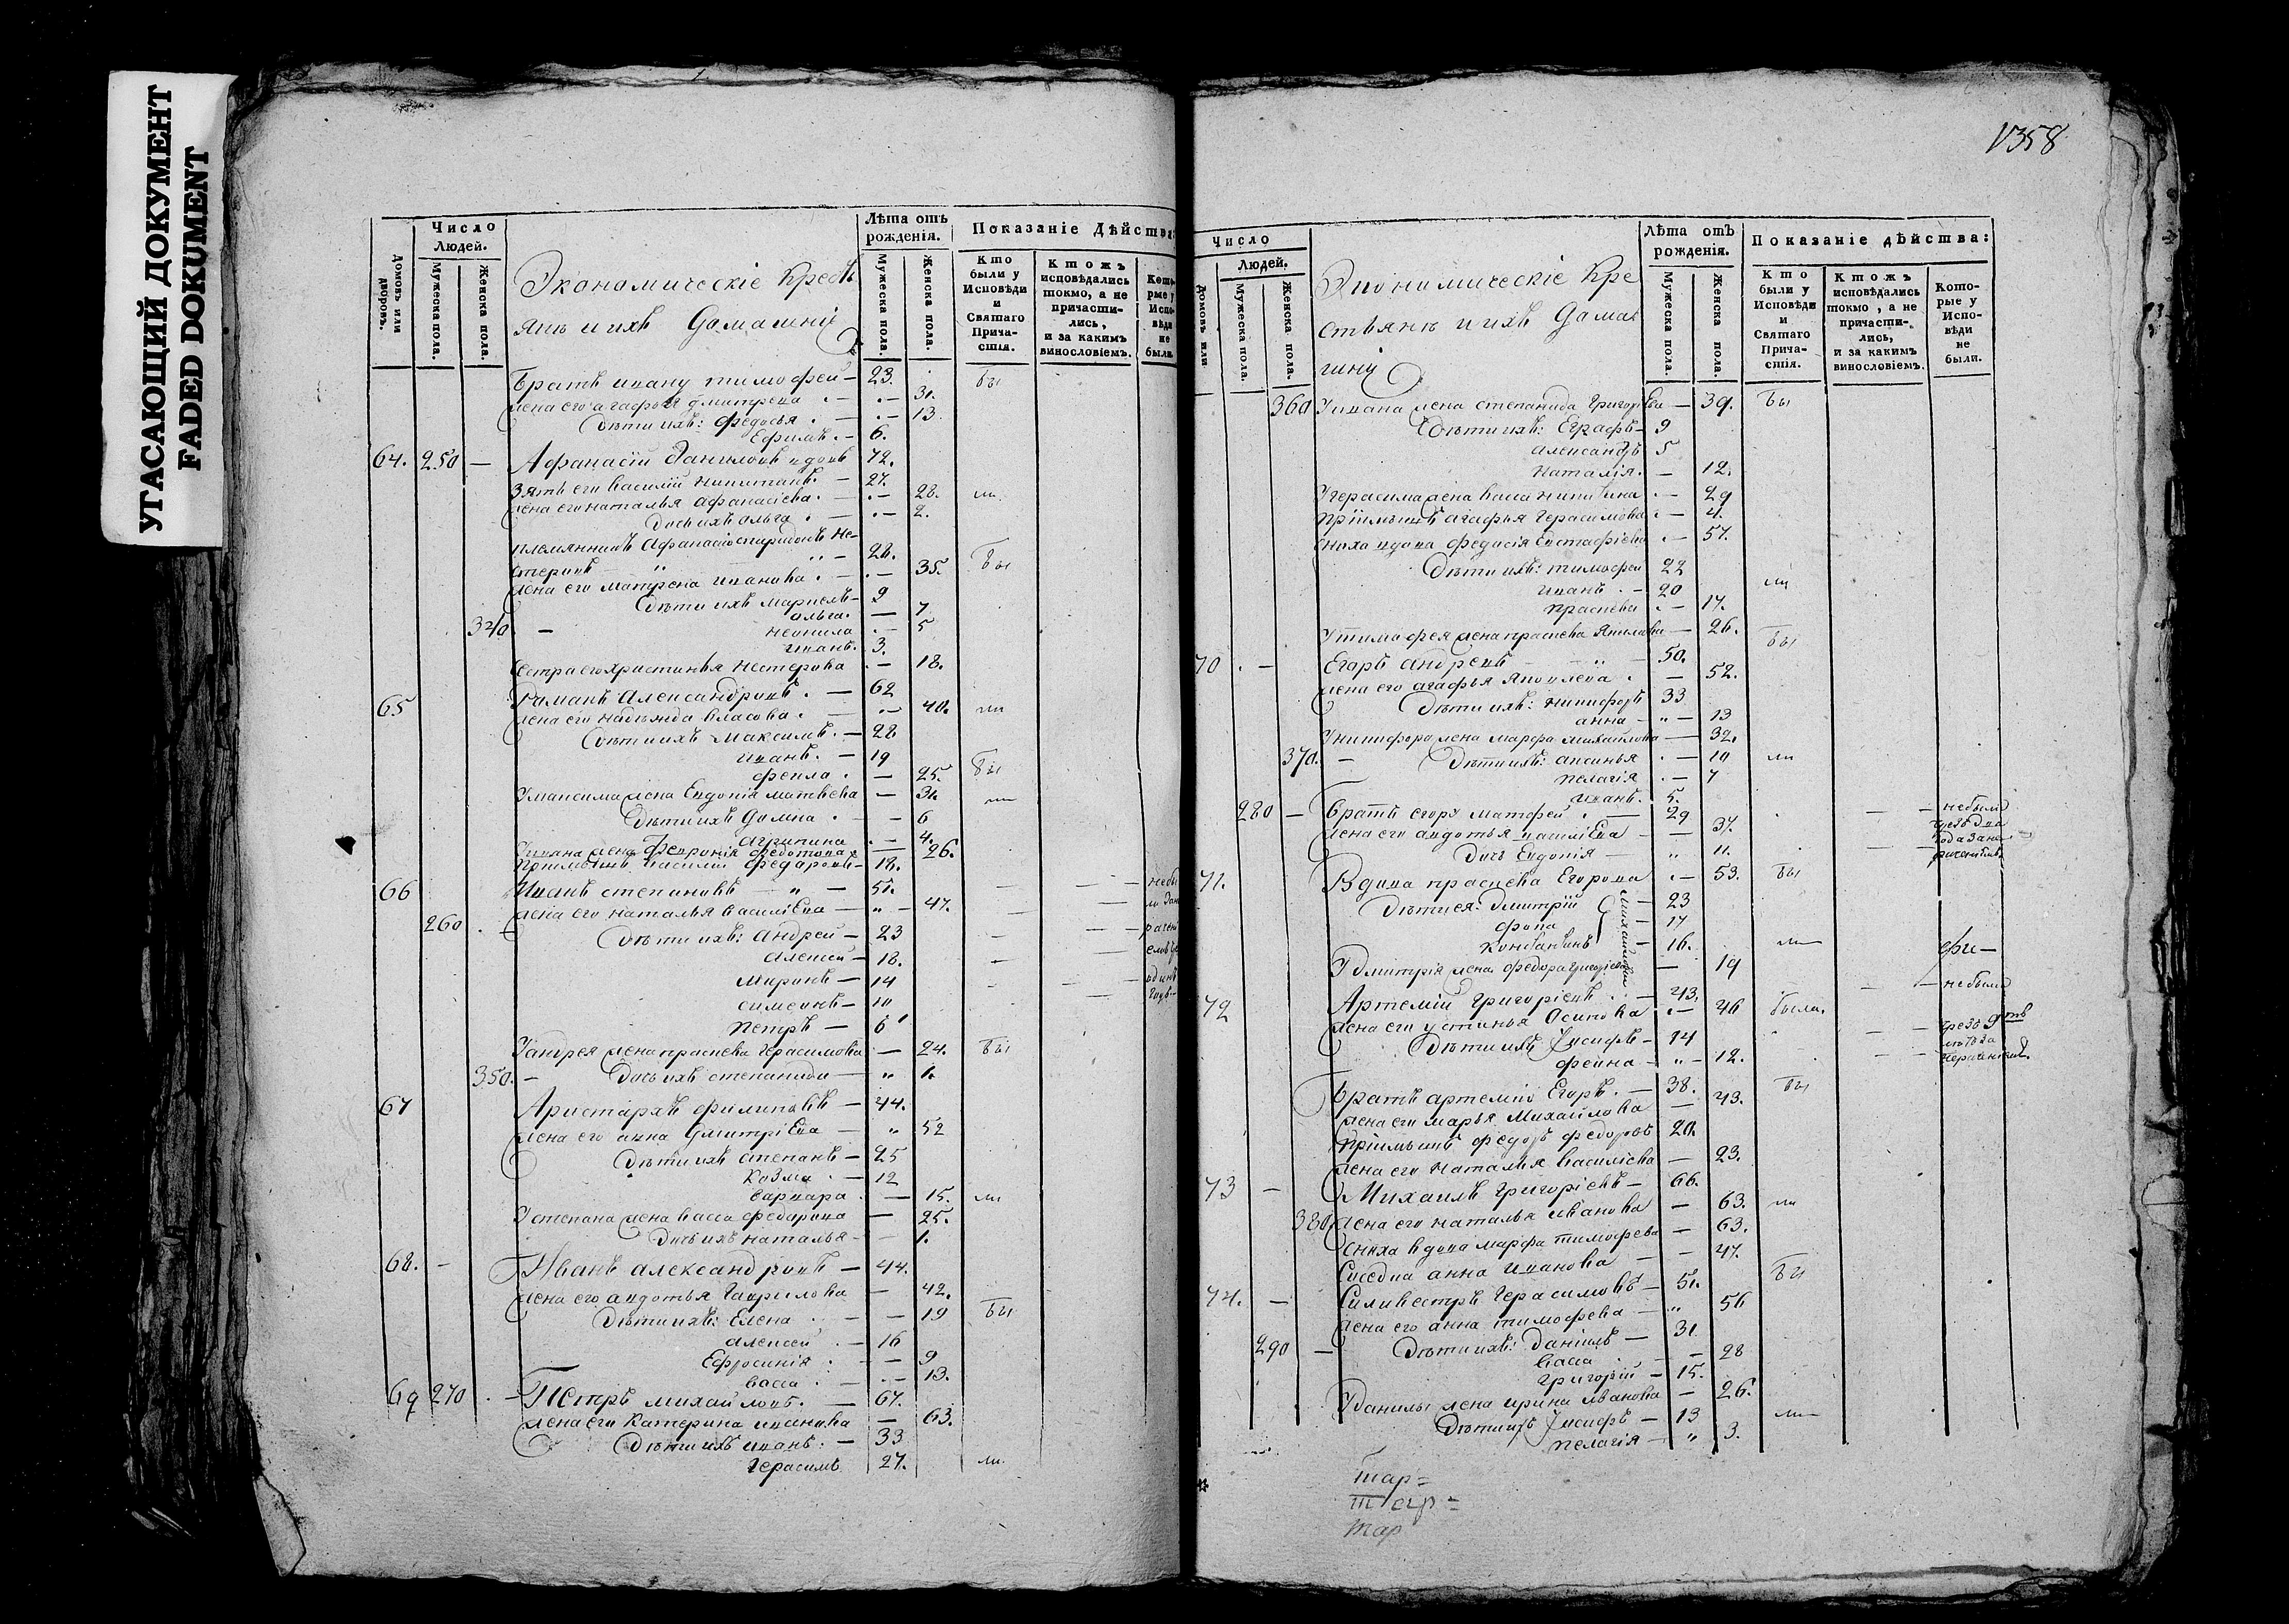 УГАСАЮЩИЙ ДОКУМЕНТ
FADED DOKUMENT
Домовъ или дворовъ.
Число Людей.
Мужеска пола.
Женска пола.
Экономическіе Крестъ
янъ и ихъ Домашніи
Лѣта отъ рожденія.
Мужеска пола.
Женска пола.
Показаніе Дѣйства:
Кто были у Исповѣди и Святаго Причастія.
Ктожъ исповѣдались токмо, а не причастились, и за какимъ винословіемъ.
Которые у Исповѣди не были.
Братъ ивану тимофей — 23. бы
жена его агафья дмитрева — 31.
дѣти ихъ: федосья — 13
Ефимъ — 6.
64. 250 — Афанасій Даниловъ вдовъ 72.
Зять его василій никитинъ — 27.
жена его наталья афанасіева — 28. ли
дочь ихъ ольга — 2.
племянникъ Афанасію спиридонъ Не-
стеровъ — 28. бы
жена его матрена иванова — 35.
дѣти ихъ маркелъ — 9
ольга — 7
340 — неонила — 5
иванъ 3.
сестра его христинья нестерова — 18.
65 Романъ Александровъ — 62
жена его надежда власова — 40. ли
дѣти ихъ Максимъ — 28
иванъ — 19
фекла — 25. бы
У максима жена Евдокія матвѣева — 31. ли
дѣти ихъ Домна — 6
агрипина — 4.
У ивана жена Февронія федотова — 26.
Пріимышъ василій федоровъ — 18.
66 Иванъ степановъ — 51. — — небы
жена его наталья василіева — 47. — — ли за не
260 — дѣти ихъ: Андрей — 23 — — рачені
алексей — 18. —
миронъ — 14 — — одинъ
симеонъ — 10 — годъ
петръ — 6
У андрея жена праскева герасимова — 24. бы
350. — дочь ихъ степанида — 1.
67 Аристархъ филиповъ — 44.
жена его анна Дмитріева — 52
дѣти ихъ степанъ — 25
козма — 12
варвара — 15. ли
У степана жена васса федорова — 25.
дочь ихъ наталья — 1.
68. — Иванъ александровъ — 44.
жена его авдотья гаврилова — 42.
дѣти ихъ: Елена — 19 бы
алексей — 16
Ефросинія — 9
васса — 13.
69 270 — Петръ михайловъ — 67.
жена его Катерина иванова — 63.
дѣти ихъ иванъ — 33
герасимъ 27. ли
1358
Домовъ или
Число Людей.
Мужеска пола.
Женска пола.
Экономическіе Кре
стьянъ и ихъ Домаш
нии
Лѣта отъ рожденія.
Мужеска пола.
Женска пола.
Показаніе дѣйства:
Кто были у Исповѣди и Святаго Причастія.
Ктожъ исповѣдались токмо, а не причастились, и за какимъ винословіемъ.
Которые у Исповѣди не были.
360 У ивана жена степанида григорьева — 39. бы
дѣти ихъ: Еграфъ — 9
александръ 5
наталія — 12.
У герасима жена васса никитина — 29
пріимышъ агафья герасимова — 4.
сноха вдова федосія Евстафіева — 57.
дѣти ихъ: тимофей 22
иванъ — 20 ли
праскева — 17.
У тимофея жена праскева Яковлева — 26. бы
70 — Егоръ андреевъ — 50.
жена его агафья Яковлева — 52.
дѣти ихъ: никифоръ 33
анна — 13
У никифора жена марфа михайлова — 32.
370. — дѣти ихъ: аксинья — 10 ли
пелагія — 7
иванъ 5.
280 — братъ егору матфей — 29 — — небыли
жена его авдотья василіева — 37.
дочь Евдокія — 11. — —
71. Вдова праскева Егорова — 53. бы
дѣти ея: дмитрій — 23
фока — 17
константинъ — 16. ли
михайловы
У дмитрія жена федора григоріева — 19
72 Артемій григоріевъ — 43. — — небыли
жена его устинья Осипова — 46 была.
дѣти ихъ Іосифъ — 14 — — чрезъ 9ть
лѣтъ за
фекла — 12. — —
братъ артемію Егоръ — 38. бы
жена его марья Михайлова — 43.
пріимышъ федоръ федоровъ 20.
жена его наталья василіева — 23.
73 — Михаилъ григоріевъ — 66.
380 жена его наталья иванова — 63. ли
сноха вдова марфа тимофева — 63.
соседка анна иванова — 47.
74. — Силивестръ герасимовъ — 51. бы
жена его анна тимофева — 56
290 — дѣти ихъ: Даніилъ — 31
васса — 28
григорій — 15.
У данилы жена ирина иванова — 26.
дѣти ихъ Іосифъ — 13 ли
пелагія — 3.
тар=
тар=
тар